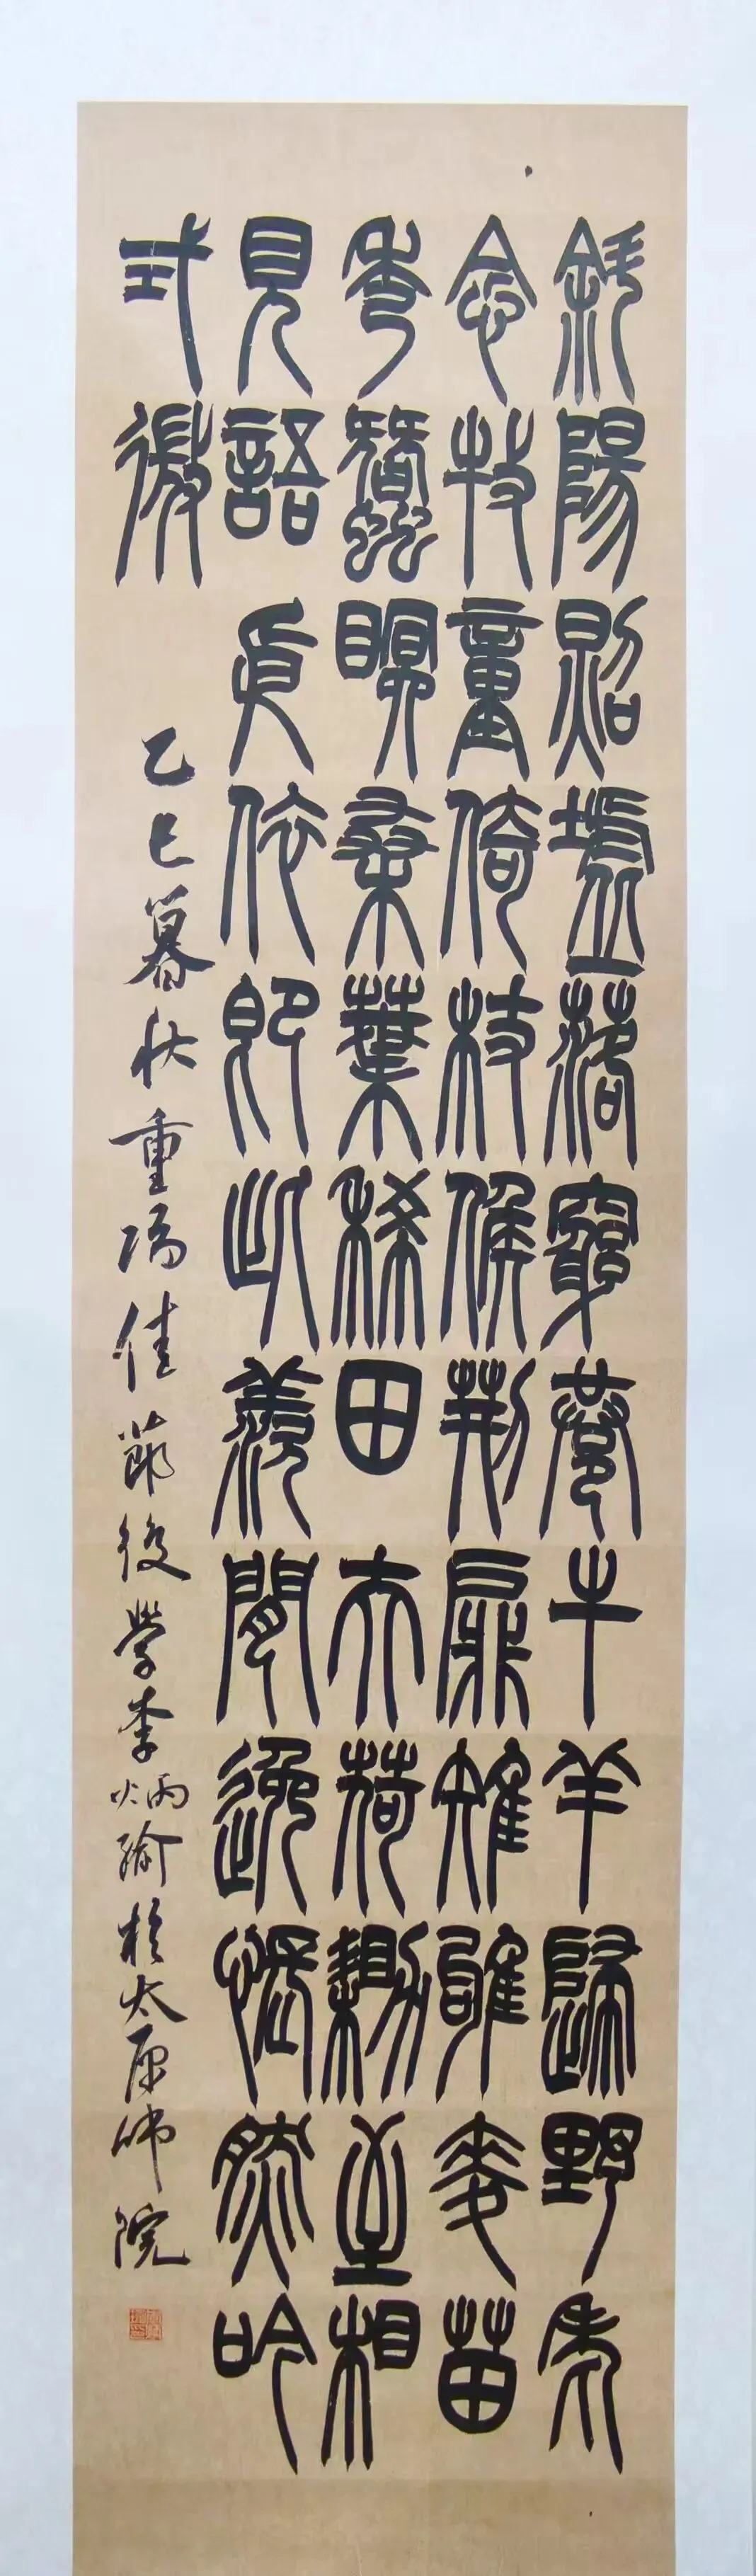 斜陽照墟落窮巷牛羊歸野老
念牧童倚杖候荊扉雉雊麥苗
秀蠶眠桑葉稀田夫荷鋤至相
見語依依即此羨閒逸悵然吟
式微
乙巳暮秋重陽佳節後學李炳瑜於太原師院